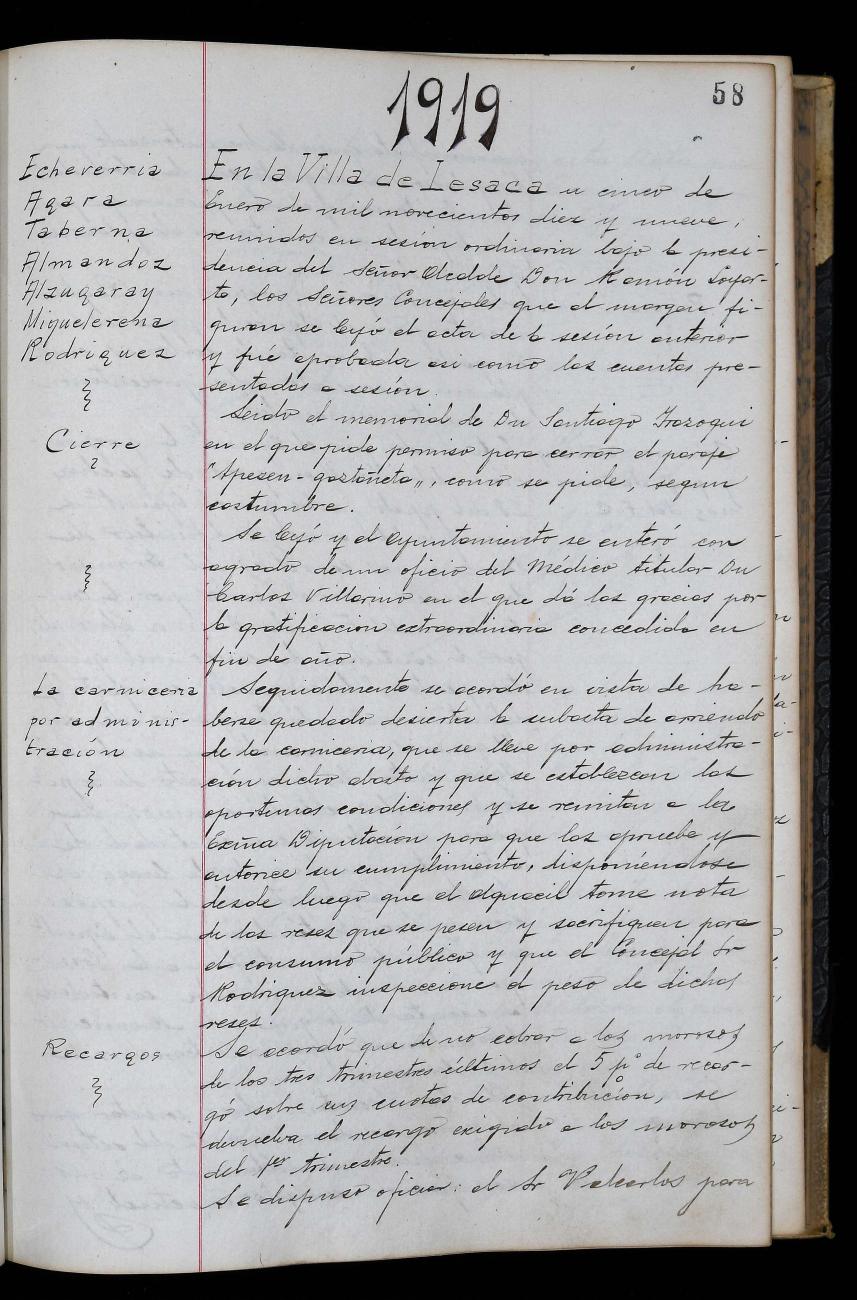 1919
58
Echeverria
Agara
Taberna
Almandoz
Alzugaray
Miguelerena
Rodriguez
En la Villa de Lesaca a cinco de
Enero de mil novecientos diez y nueve,
reunidos en sesión ordinaria bajo la presi-
dencia del Señor Alcalde Don Ramón
to, los Señores Concejales que al margen fi-
guran se leyó el acta de la sesión anterior
y fué aprobada asi como las cuentas pre-
sentadas a sesión.
Cierre
Leido el memorial de Dn Santiago Irazoqui
en el que pide permiso para cerrar el paraje
"Apesen-gaztañeta", como se pide, segun
costumbre.
Se leyó y el Ayuntamiento se enteró con
agrado de un oficio del Médico titular Dn
Carlos Villarino en el que dá las gracias por
la gratificacion extraordinaria concedida en
fin de año.
La carniceria
por adminis-
tración
Seguidamente se acordó en vista de ha-
berse quedado desierta la subasta de arriendo
de la carniceria, que se lleve por administra-
ción dicho abasto y que se establezcan las
oportunas condiciones y se remitan a la
Exma Diputación para que las apruebe y
autorice su cumplimiento, disponiendose
desde luego que el alguacil tome nota
de las reses que se pesen y sacrifiquen para
el consumo público y que el Concejal Sr
Rodriguez inspeccione el peso de dichas
reses.
Recargos
Se acordó que de no cobrar a los morosos
de los tres trimestres últimos el 5 p% de recar-
gó sobre sus cuotas de contribución, se
devuelva el recargo exigido a los morosos
del 1er trimestre.
Se dispuso oficiar: al Sr Valcarlos para